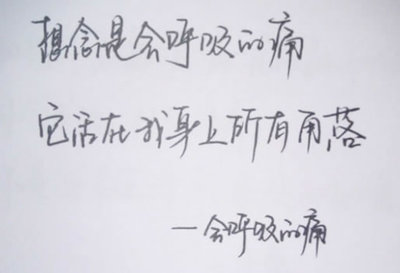 想念是会呼吸的痛
它活在我身上所有角落
—会呼吸的痛